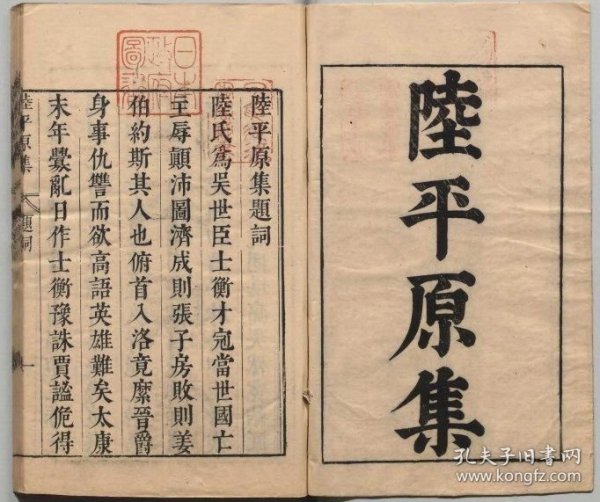 陸平原集
陸平原集題詞
陸氏爲吳世臣士衡才冠當世國亡
主辱顚沛圖濟成則張子房敗則姜
伯約斯其人也俯首入洛竟縻晉爵
身事仇讐而欲高語英雄難矣太康
末年釁亂日作士衡豫誅賈謐佹得
陸平原集
題詞
一
孔夫子旧书网
www.kongfz.com